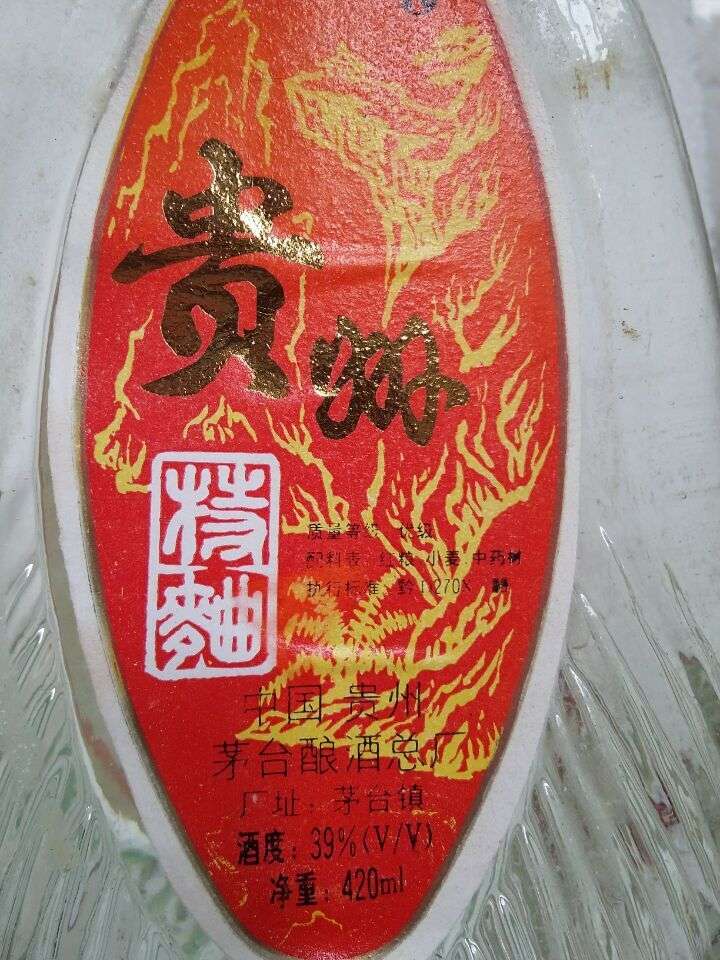 贵州
特麯
质量等级 优级
配料表:红粮 小麦 中药材
执行标准:黔
中国 贵州
茅台酿酒总厂
厂址:茅台镇
酒度:39%(V/V)
净重:420ml